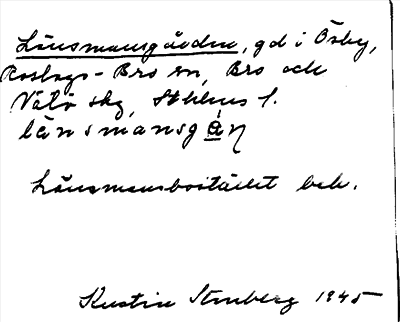 Länsmansgården, gd i Ösby,
Roslags-Bro sn, Bro och
Vätö skg, Sthlms l.
länsmansgån
Länsmansbostället bek.
Kerstin Strnberg 1945